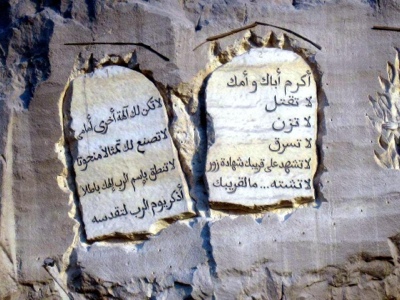 لا تكن لك آلهة أخرى أمامي
لا تصنع لك تمثالا منحوتا
لا تنطق باسم الرب إلهك باطلا
أذكر يوم الرب لتقدسه
أكرم أباك و أمك
لا تقتل
لا تزن
لا تسرق
لا تشهد على قريبك شهادة زور
لا تشته... ما لقريبك